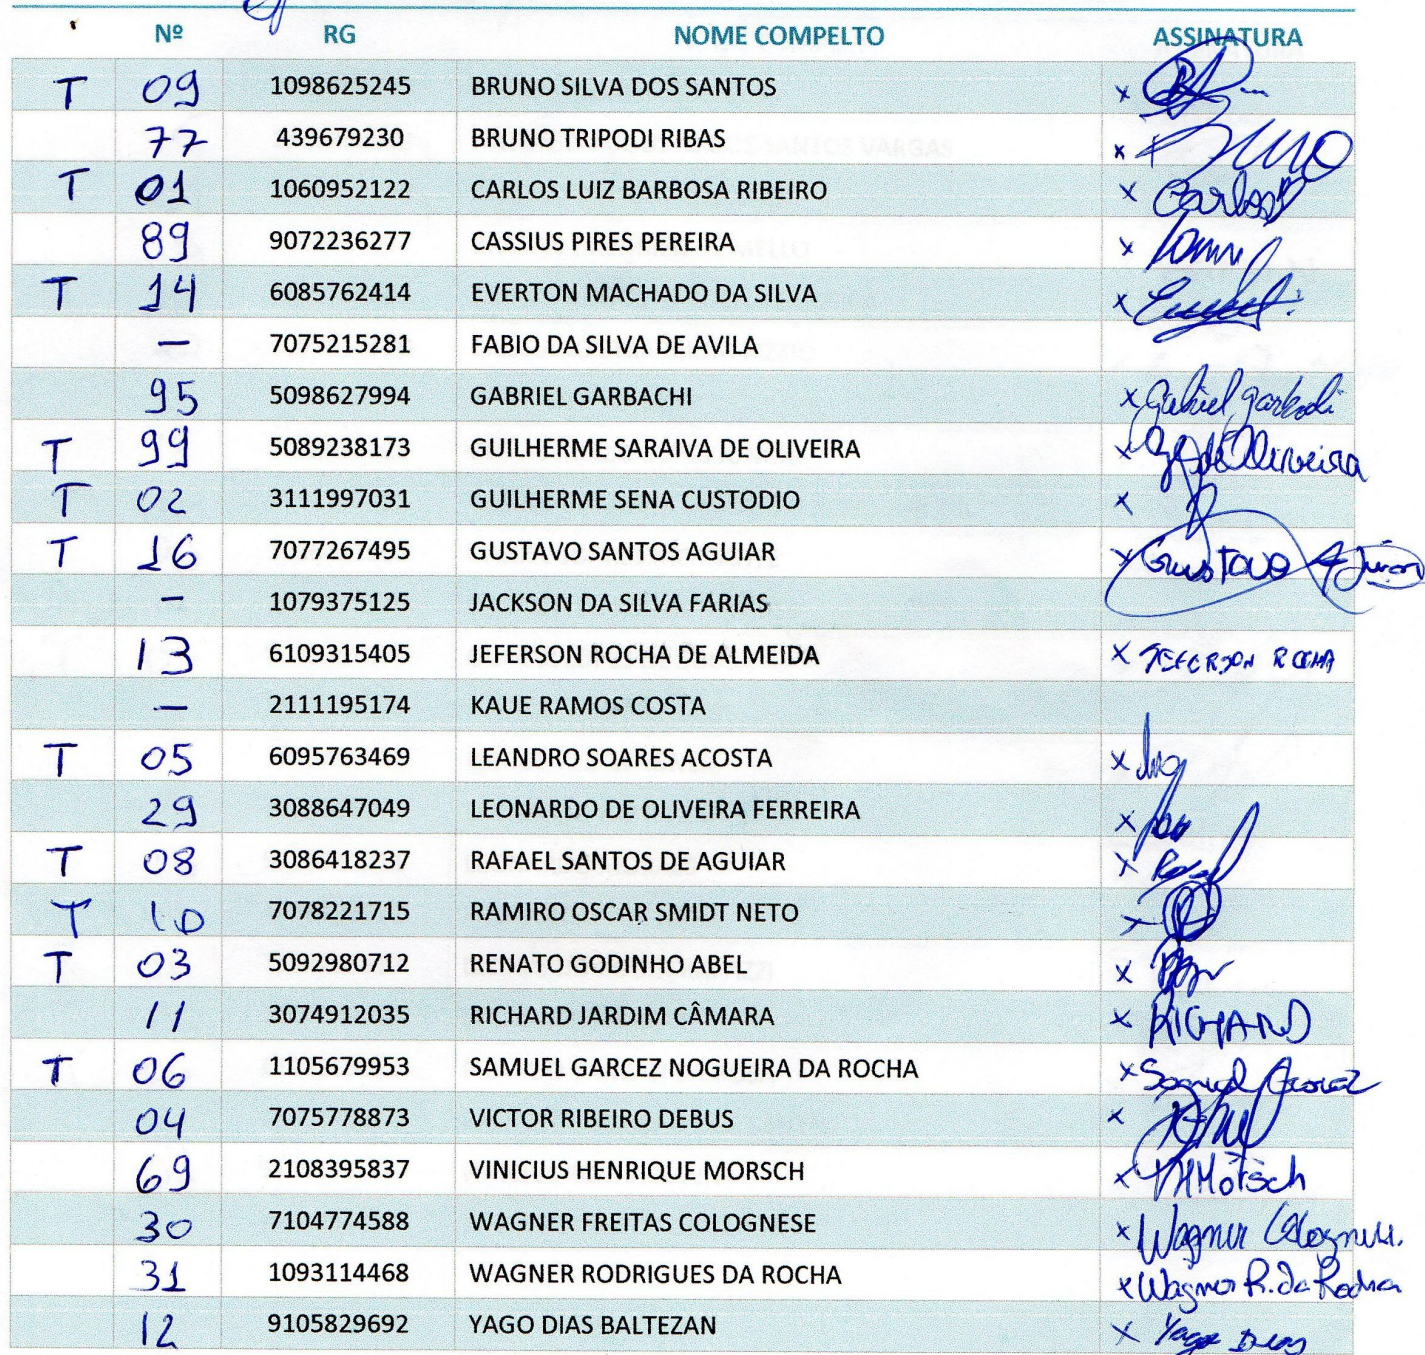 Nº RG NOME COMPELTO ASSINATURA
T 09 1098625245 BRUNO SILVA DOS SANTOS x
77 439679230 BRUNO TRIPODI RIBAS x
T 01 1060952122 CARLOS LUIZ BARBOSA RIBEIRO x Carlos
89 9072236277 CASSIUS PIRES PEREIRA x
T 14 6085762414 EVERTON MACHADO DA SILVA x
— 7075215281 FABIO DA SILVA DE AVILA
95 5098627994 GABRIEL GARBACHI x Gabriel
T 99 5089238173 GUILHERME SARAIVA DE OLIVEIRA x Oliveira
T 02 3111997031 GUILHERME SENA CUSTODIO x
T 16 7077267495 GUSTAVO SANTOS AGUIAR x Gustavo
— 1079375125 JACKSON DA SILVA FARIAS
13 6109315405 JEFERSON ROCHA DE ALMEIDA x JEFERSON ROCHA
— 2111195174 KAUE RAMOS COSTA
T 05 6095763469 LEANDRO SOARES ACOSTA x
29 3088647049 LEONARDO DE OLIVEIRA FERREIRA x
T 08 3086418237 RAFAEL SANTOS DE AGUIAR x
T 10 7078221715 RAMIRO OSCAR SMIDT NETO x
T 03 5092980712 RENATO GODINHO ABEL x
11 3074912035 RICHARD JARDIM CÂMARA x RICHARD
T 06 1105679953 SAMUEL GARCEZ NOGUEIRA DA ROCHA x Samuel Garcez
04 7075778873 VICTOR RIBEIRO DEBUS x
69 2108395837 VINICIUS HENRIQUE MORSCH x VHMorsch
30 7104774588 WAGNER FREITAS COLOGNESE x Wagner Colognese.
31 1093114468 WAGNER RODRIGUES DA ROCHA x Wagner R. da Rocha
12 9105829692 YAGO DIAS BALTEZAN x Yago Dias